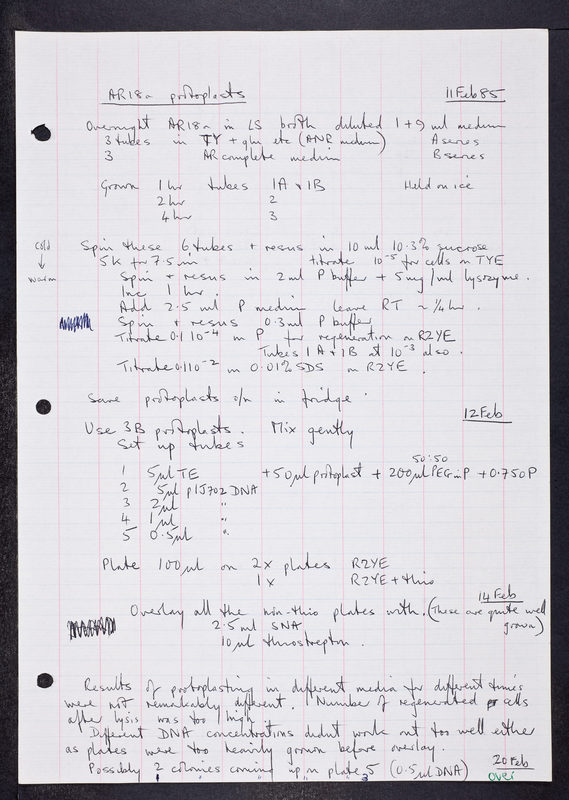 AR18a protoplasts 11 Feb 85
Overnight AR18a in LS broth diluted 1+9 ml medium
3 tubes in TY + glu etc (ANR medium) A series
3 AR complete medium B series
Grown 1 hr tubes 1A + 1B Held on ice
2 hr 2
4 hr 3
cold ↓ warm
Spin these 6 tubes + resus in 10 ml 10.3% sucrose
5K for 7.5 min titrate 10-5 for cells on TYE
Spin + resus in 2 ml P buffer + 5 mg/ml lysozyme.
Inc 1 hr.
Add 2.5 ml P medium leave RT ~ 1/4 hr.
Spin + resus 0.3 ml P buffer
Titrate 0.1 10-4 in P for regeneration on R2YE
Tubes 1A + 1B at 10-3 also.
Titrate 0.1 10-2 in 0.01% SDS on R2YE.
Save protoplasts o/n in fridge.
12 Feb
Use 3B protoplasts. Mix gently
Set up tubes
50:50
1 5µl TE + 50µl protoplast + 200µl PEG in P + 0.750 P
2 5µl pIJ702 DNA
3 2µl "
4 1µl "
5 0.5µl "
Plate 100µl on 2x plates R2YE
1x R2YE + thio
14 Feb
Overlay all the non-thio plates with. (These are quite well grown)
2.5 ml SNA
10µl thiostrepton.
Results of protoplasting in different media for different times
were not remarkably different. Number of regenerated cells
after lysis was too high
Different DNA concentrations didnt work out too well either
as plates were too heavily grown before overlay.
Possibly 2 colonies coming up on plate 5 (0.5µl DNA) 20 Feb
over